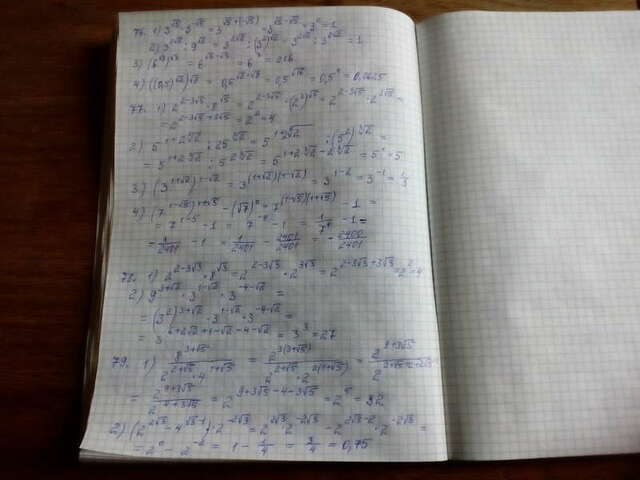 76. 1) 3^√5 · 3^-√5 = 3^√5+(-√5) = 3^√5-√5 = 3^0 = 1
2) 3^2√2 : 9^√2 = 3^2√2 : (3^2)^√2 = 3^2√2 : 3^2√2 = 1
4) ((0,5)^√8)^√2 = 0,5^√8·√2 = 0,5^√16 = 0,5^4 = 0,0625
77. 1) 2^2-3√5 · 8^√5 = 2^2-3√5 · (2^3)^√5 = 2^2-3√5 · 2^3√5 =
= 2^2-3√5+3√5 = 2^2 = 4
2) 5^1+2∛2 : 25^∛2 = 5^1+2∛2 : (5^2)^∛2 =
= 5^1+2∛2 : 5^2∛2 = 5^1+2∛2-2∛2 = 5^1 = 5
3) (3^1+√2)^1-√2 = 3^(1+√2)(1-√2) = 3^1-2 = 3^-1 = 1/3
4) (7^1-√5)^1+√5 - (√7)^0 = 7^(1-√5)(1+√5) - 1 =
= 7^1-5 - 1 = 7^-4 - 1 = 1/7^4 - 1 =
= 1/2401 - 1 = 1/2401 - 2401/2401 = - 2400/2401
78. 1) 2^2-3√3 · 8^√3 = 2^2-3√3 · 2^3√3 = 2^2-3√3+3√3 = 2^2 = 4
2) 9^3+√2 · 3^1-√2 · 3^-4-√2 =
= (3^2)^3+√2 · 3^1-√2 · 3^-4-√2 =
= 3^6+2√2+1-√2-4-√2 = 3^3 = 27
79. 1) 8^3+√5 / 2^2+√5 · 4^1+√5 = 2^3(3+√5) / 2^2+√5 · 2^2(1+√5) = 2^9+3√5 / 2^2+√5+2+2√5
= 2^9+3√5 / 2^4+3√5 = 2^9+3√5-4-3√5 = 2^5 = 32
2) (2^2√3 - 4^√3-1) · 2^-2√3 = 2^2√3 · 2^-2√3 - 2^2√3-2 · 2^-2√3 =
= 2^0 - 2^-2 = 1 - 1/4 = 3/4 = 0,75